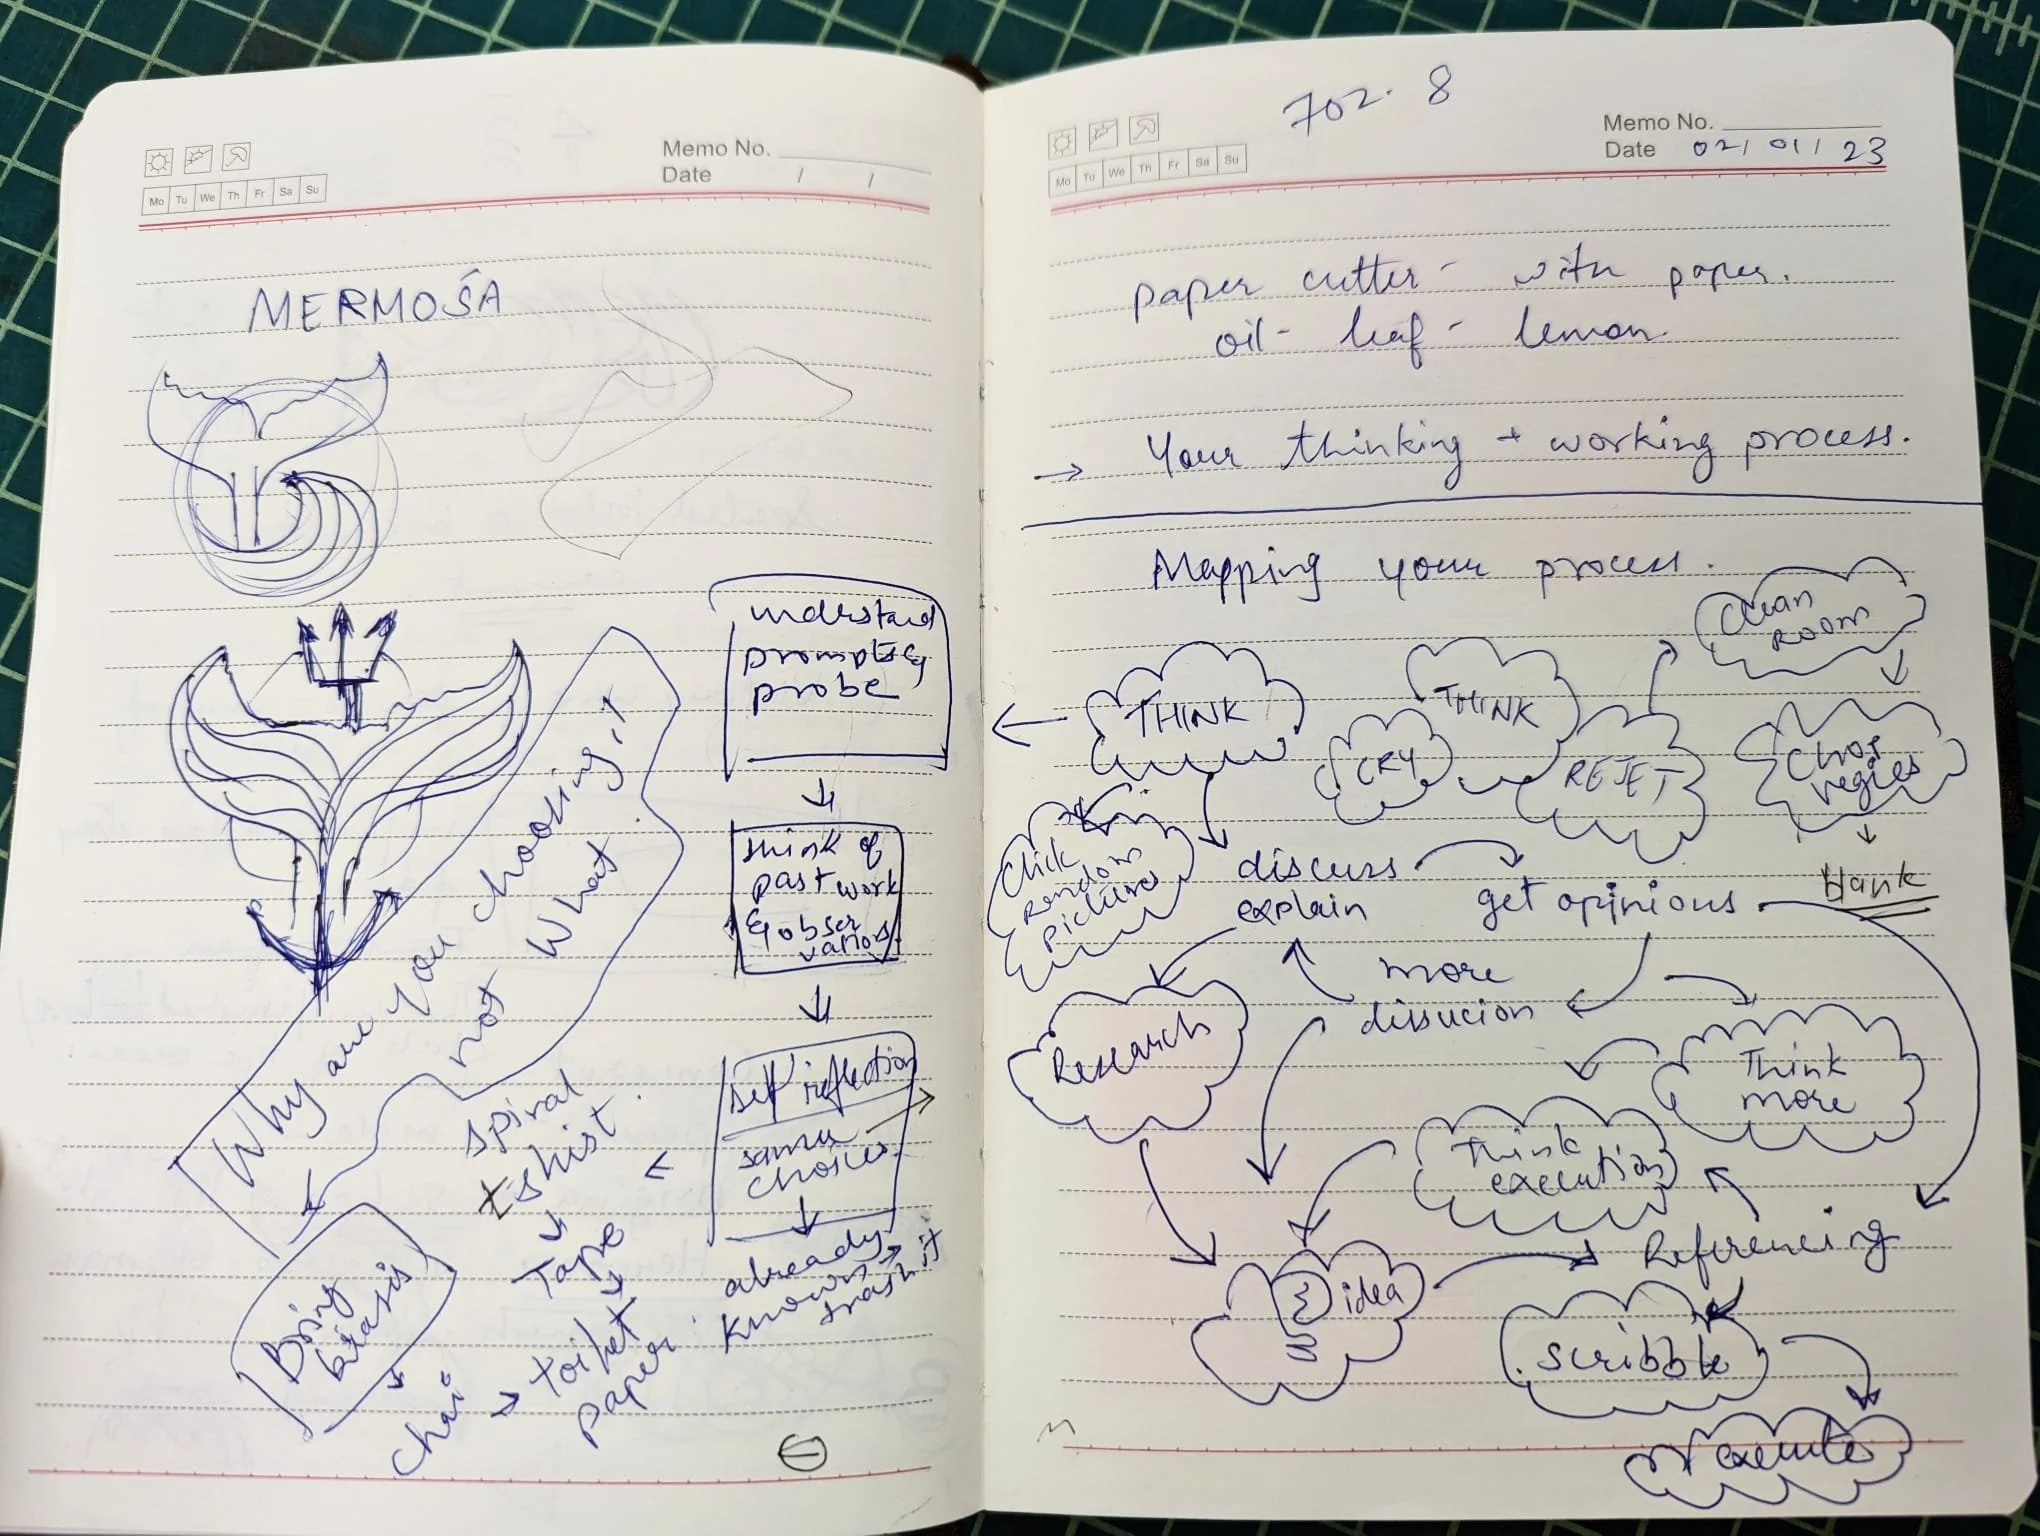 Memo No.
Date / /
Mo Tu We Th Fr Sa Su
MERMOŚA
understand
probe
think of
past work
& obser
vations
self reflection
choices
already
known → trash it
Why are you choosing it
not What
spiral
Tape
toilet
paper
Bring
chai
702. 8
Memo No.
Date 02/ 01/ 23
Mo Tu We Th Fr Sa Su
paper cutter - with paper.
oil - leaf - lemon
→ Your thinking + working process.
Mapping your process.
Clean
ROOM
THINK
THINK
CRY
REJET
Chop
vegies
Click
random
pictures
discuss
explain
get opinions
Hank
more
dissucion
Research
Think
more
Think
execution
Referencing
idea
scribble
execute